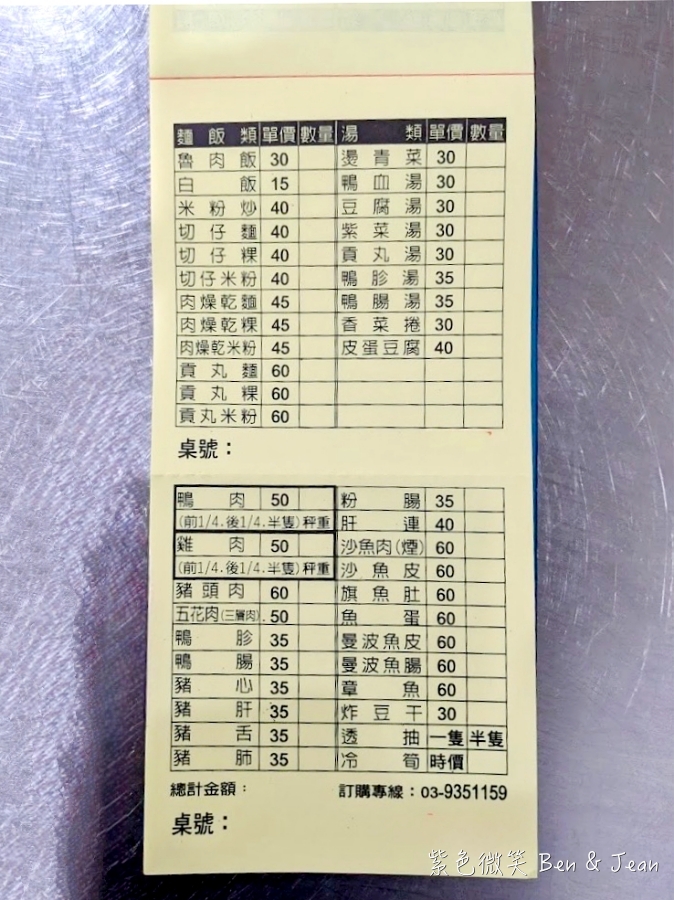 麵飯類 單價 數量 湯類 單價 數量
魯肉飯 30 燙青菜 30
白飯 15 鴨血湯 30
米粉炒 40 豆腐湯 30
切仔麵 40 紫菜湯 30
切仔粿 40 貢丸湯 30
切仔米粉 40 鴨胗湯 35
肉燥乾麵 45 鴨腸湯 35
肉燥乾粿 45 香菜捲 30
肉燥乾米粉 45 皮蛋豆腐 40
貢丸麵 60
貢丸粿 60
貢丸米粉 60
桌號：
鴨肉 50 粉腸 35
(前1/4.後1/4.半隻)秤重 肝連 40
雞肉 50 沙魚肉(煙) 60
(前1/4.後1/4.半隻)秤重 沙魚皮 60
豬頭肉 60 旗魚肚 60
五花肉(三層肉). 50 魚蛋 60
鴨胗 35 曼波魚皮 60
鴨腸 35 曼波魚腸 60
豬心 35 章魚 60
豬肝 35 炸豆干 30
豬舌 35 透抽 一隻 半隻
豬肺 35 冷筍 時價
總計金額： 訂購專線：03-9351159
桌號：
紫色微笑 Ben & Jean